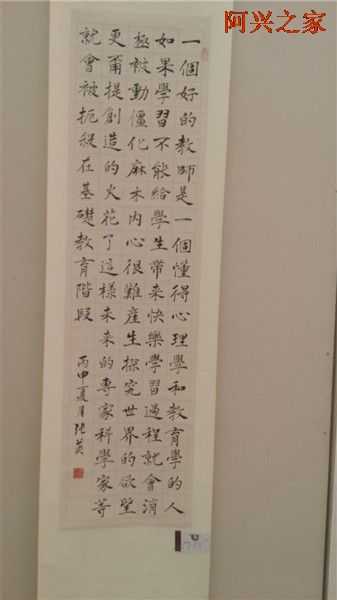 阿兴之家
一個好的教師是一個懂得心理學和教育學的人
如果學習不能給學生帶來快樂學習過程就會消
極被動僵化麻木內心很難產生探究世界的欲望
更甭提創造的火花了這樣未來的專家科學家等
就會被扼殺在基礎教育階段
丙申夏月張英